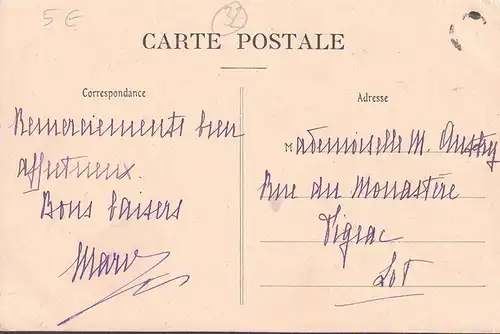 5 €
32
CARTE POSTALE
Correspondance
Remerciements bien
affectueux.
Bons baisers
Adresse
Mademoiselle M.
Rue du Monastère
Vigeac
Lot